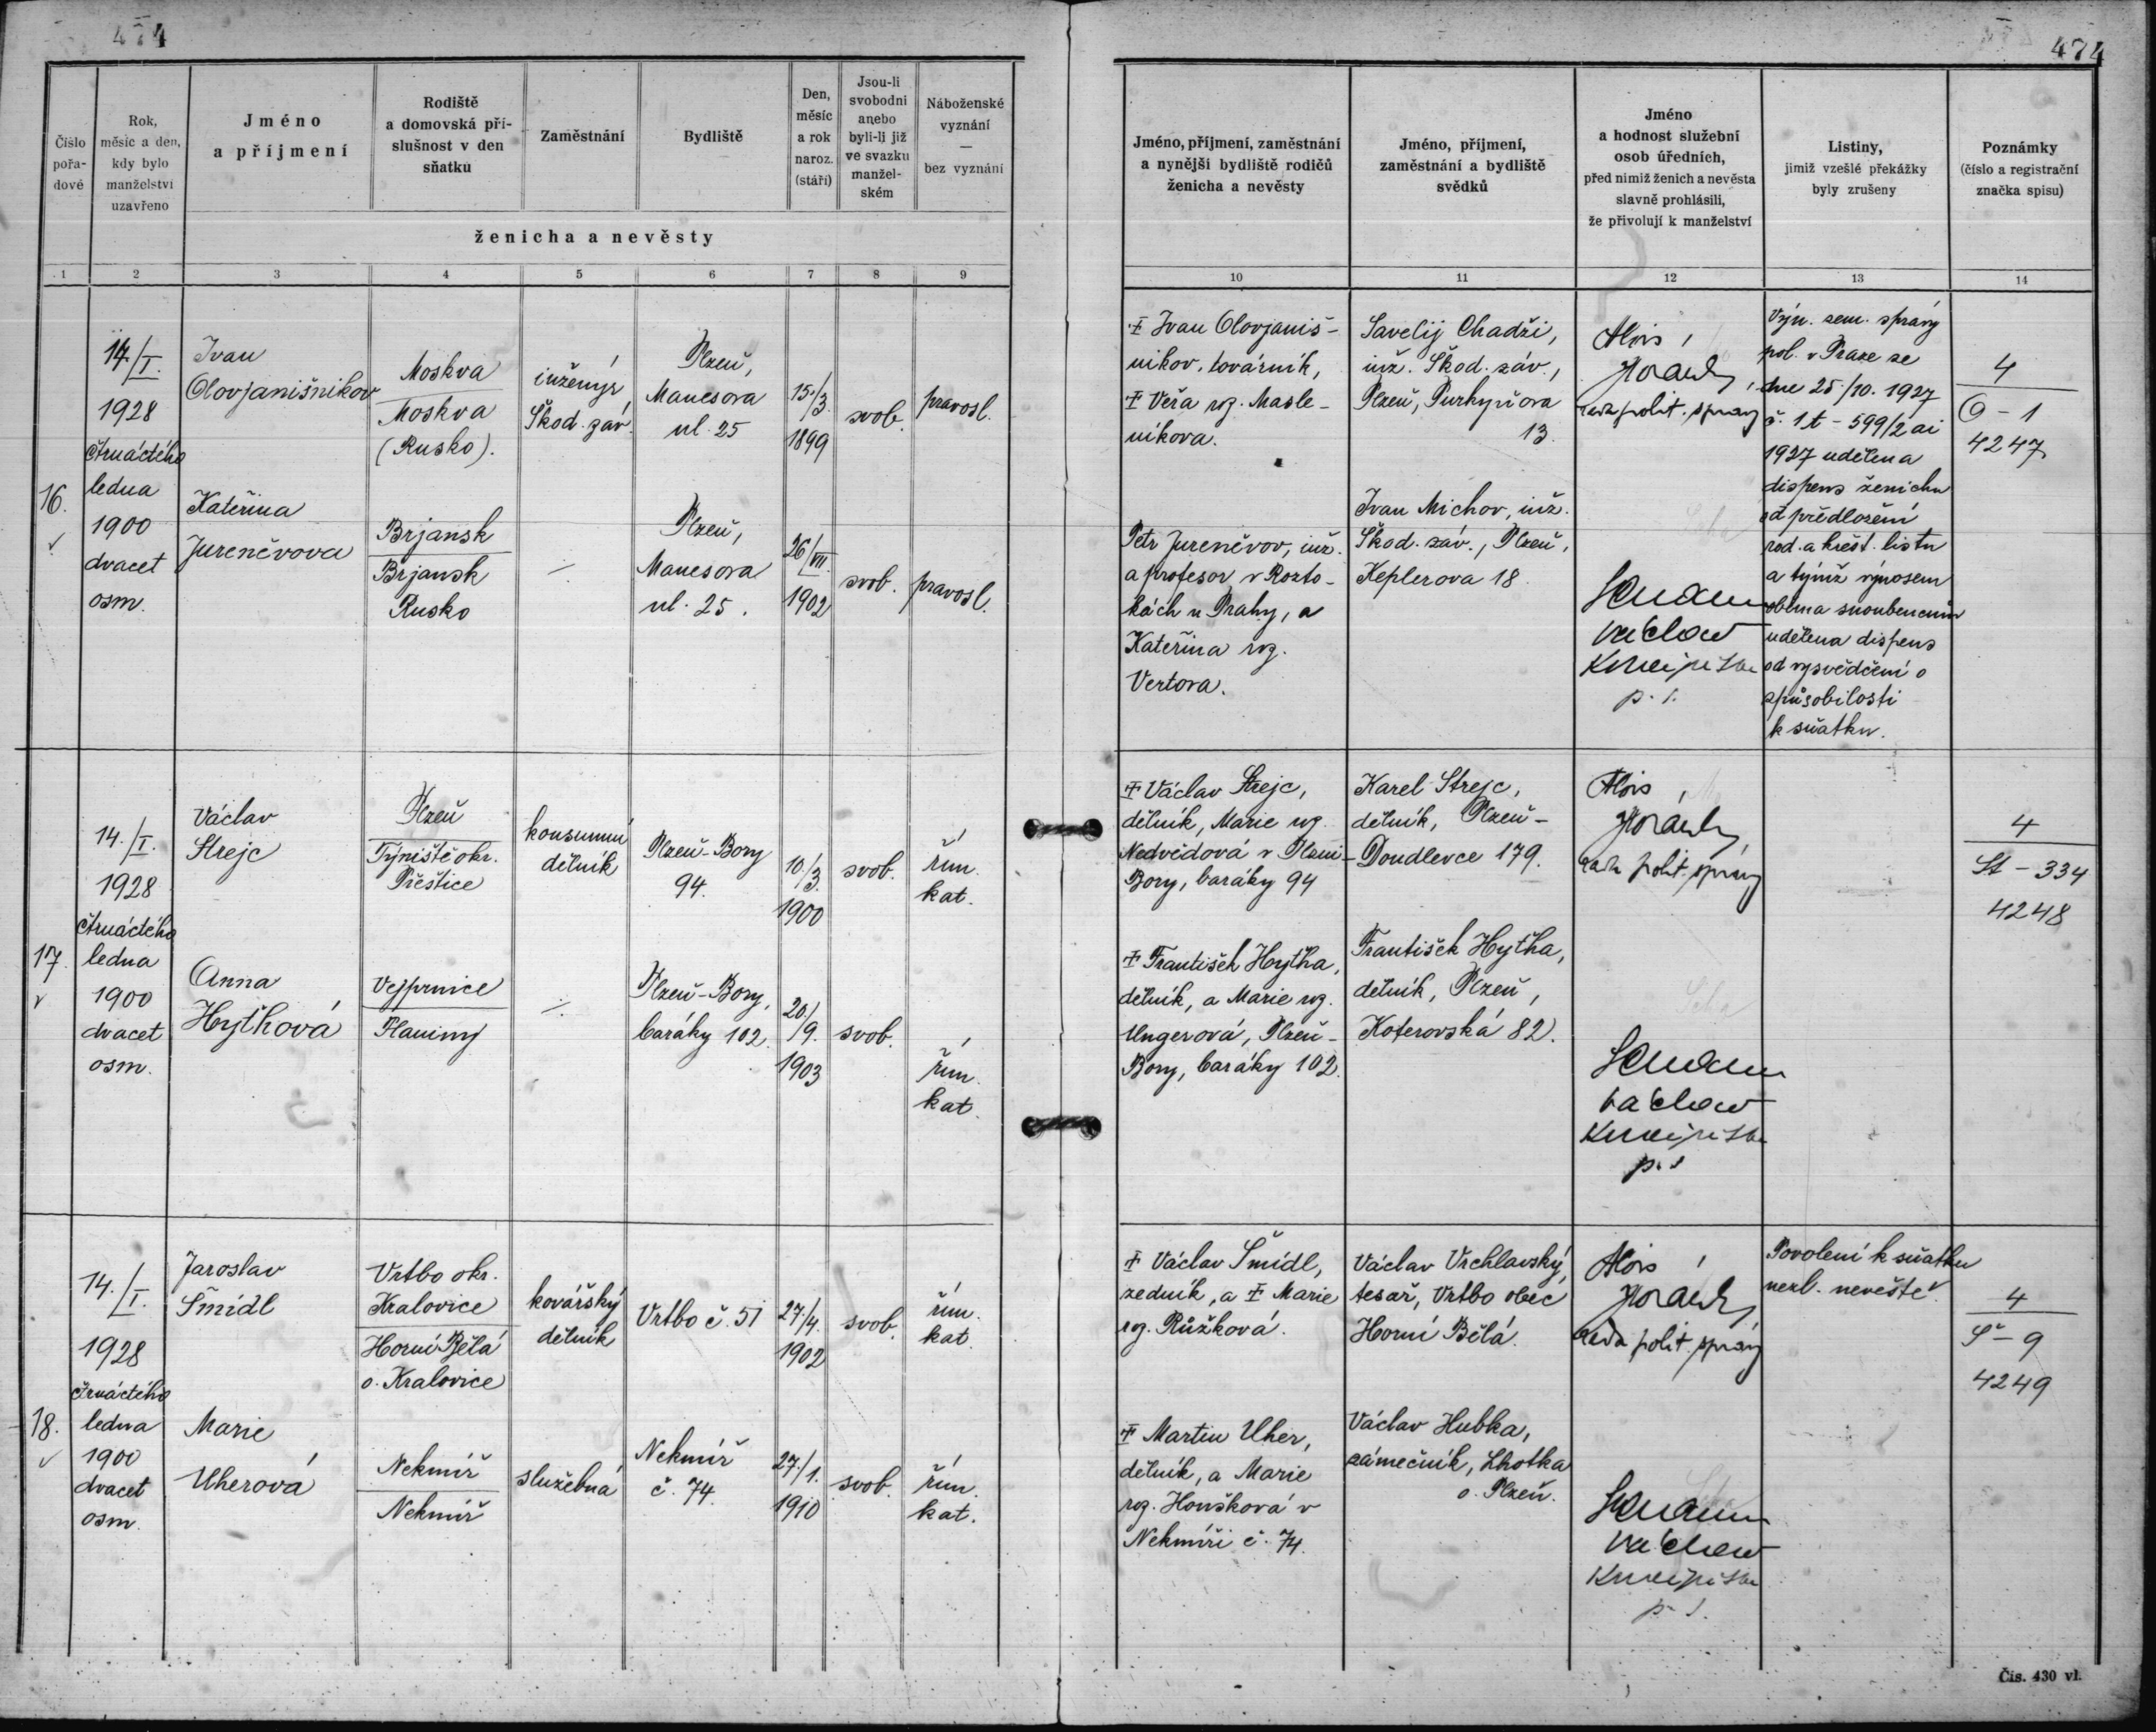 474
474
Číslo pořa-dové
Rok, měsíc a den, kdy bylo manželství uzavřeno
Jméno a příjmení
Rodiště a domovská pří-slušnost v den sňatku
Zaměstnání
Bydliště
Den, měsíc a rok naroz. (stáří)
Jsou-li svobodni anebo byli-li již ve svazku manžel-ském
Náboženské vyznání — bez vyznání
ženicha a nevěsty
Jméno, příjmení, zaměstnání a nynější bydliště rodičů ženicha a nevěsty
Jméno, příjmení, zaměstnání a bydliště svědků
Jméno a hodnost služební osob úředních, před nimiž ženich a nevěsta slavně prohlásili, že přivolují k manželství
Listiny, jimiž vzešlé překážky byly zrušeny
Poznámky (číslo a registrační značka spisu)
1 2 3 4 5 6 7 8 9 10 11 12 13 14
16.
14./I.
1928
čtrnáctého
ledna
1900
dvacet
osm.
Ivan
Olovjanišnikov
Moskva
Moskva
(Rusko).
inženýr
Škod. záv.
Plzeň,
Manesova
ul. 25
15./3.
1899
svob.
pravosl.
Kateřina
Jureněvova
Brjansk
Brjansk
Rusko
Plzeň,
Manesova
ul. 25.
26/VII.
1902
svob.
pravosl.
Ivan Olovjaniš-
nikov, továrník,
Věra roz. Masle-
nikova.
Petr Jureněvov, inž.
a profesor v Rozto-
kách u Prahy, a
Kateřina roz.
Vertova.
Savelij Chadži,
inž. Škod. záv.,
Plzeň, Purkyňova
13.
Ivan Michov, inž.
Škod. záv., Plzeň,
Keplerova 18.
Alois
Horák,
rada polit. správy
Václav
p. s.
Výn. zem. správy
pol. v Praze ze
dne 25/10. 1927
č. 1t - 599/2 ai
1927 udělena
dispens ženichu
od předložení
rod. a křest. listu
a týmž výnosem
oběma snoubencům
udělena dispens
od vysvědčení o
způsobilosti
k sňatku.
4
O - 1
4247
17.
14./I.
1928
čtrnáctého
ledna
1900
dvacet
osm.
Václav
Strejc
Plzeň
Týniště okr.
Přeštice
konsumní
dělník
Plzeň-Bory
94.
10./3.
1900
svob.
řím.
kat.
Anna
Hythová
Vejprnice
Planiny
Plzeň-Bory,
baráky 102.
20./9.
1903
svob.
řím.
kat.
Václav Strejc,
dělník, Marie roz.
Nedvědová v Plzni-
Bory, baráky 94
František Hytha,
dělník, a Marie roz.
Ungerová, Plzeň-
Bory, baráky 102.
Karel Strejc,
dělník, Plzeň-
Doudlevce 179.
František Hytha,
dělník, Plzeň,
Koterovská 82.
Alois
Horák,
rada polit. správy
Václav
p. s.
4
St - 334
4248
18.
14./I.
1928
čtrnáctého
ledna
1900
dvacet
osm.
Jaroslav
Šmídl
Vrtbo okr.
Kralovice
Horní Bělá
o. Kralovice
kovářský
dělník
Vrtbo č. 51
27/4.
1902
svob.
řím.
kat.
Marie
Uherová
Nekmíř
Nekmíř
služebná
Nekmíř
č. 74.
27./1.
1910
svob.
řím.
kat.
Václav Šmídl,
zedník, a Marie
roz. Růžková.
Martin Uher,
dělník, a Marie
roz. Houšková v
Nekmíři č. 74.
Václav Vrchlavský,
tesař, Vrtbo obec
Horní Bělá.
Václav Hubka,
zámečník, Lhotka
o. Plzeň.
Alois
Horák,
rada polit. správy
Václav
p. s.
Povolení k sňatku
nezl. nevěstě.
4
Š - 9
4249
Čís. 430 vl.